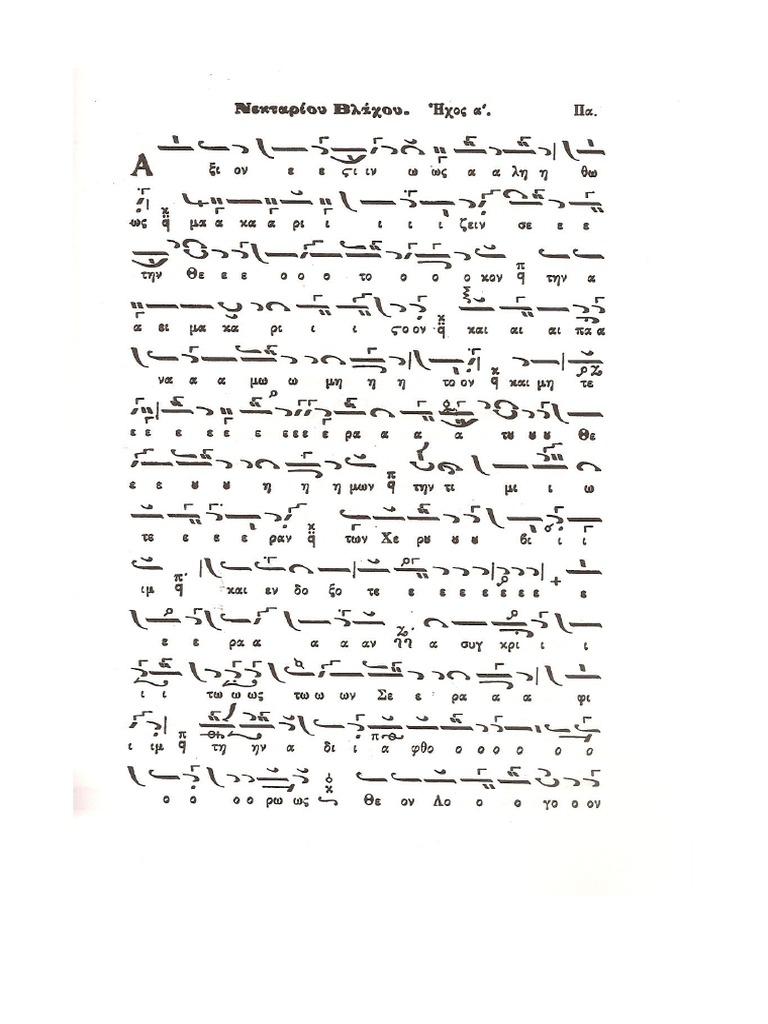 Νεκταρίου Βλάχου. Ἦχος α΄. Πα.
Α ξι ον ε ε ςι ιν ω ως α α λη η θω
ως μα α κα α ρι ι ι ι ι ζειν σε ε ε
την Θε ε ε ο ο ο το ο ο ο κον την α
α ει μα κα ρι ι ι ςο ον και αι αι πα α
να α α μω ω μη η η το ον και μη τε
ε ε ε ε ε ε ε ε ε ρα α α α τȣ ȣ ȣ Θε
ε ε ȣ ȣ ἡ η η μων την τι μι ι ω
τε ε ε ε ραν των Χε ρȣ ȣ ȣ βι ι ι
ιμ και εν δο ξο τε ε ε ε ε ε ε ε
ε ε ρα α α α αν α συγ κρι ι ι
ι ι τω ω ως τω ω ων Σε ε ρα α α φι
ι ιμ τη ην α δι ι α φθο ο ο ο ο ο ο
ο ο ο ο ρω ως Θε ον Λο ο ο γο ο ον